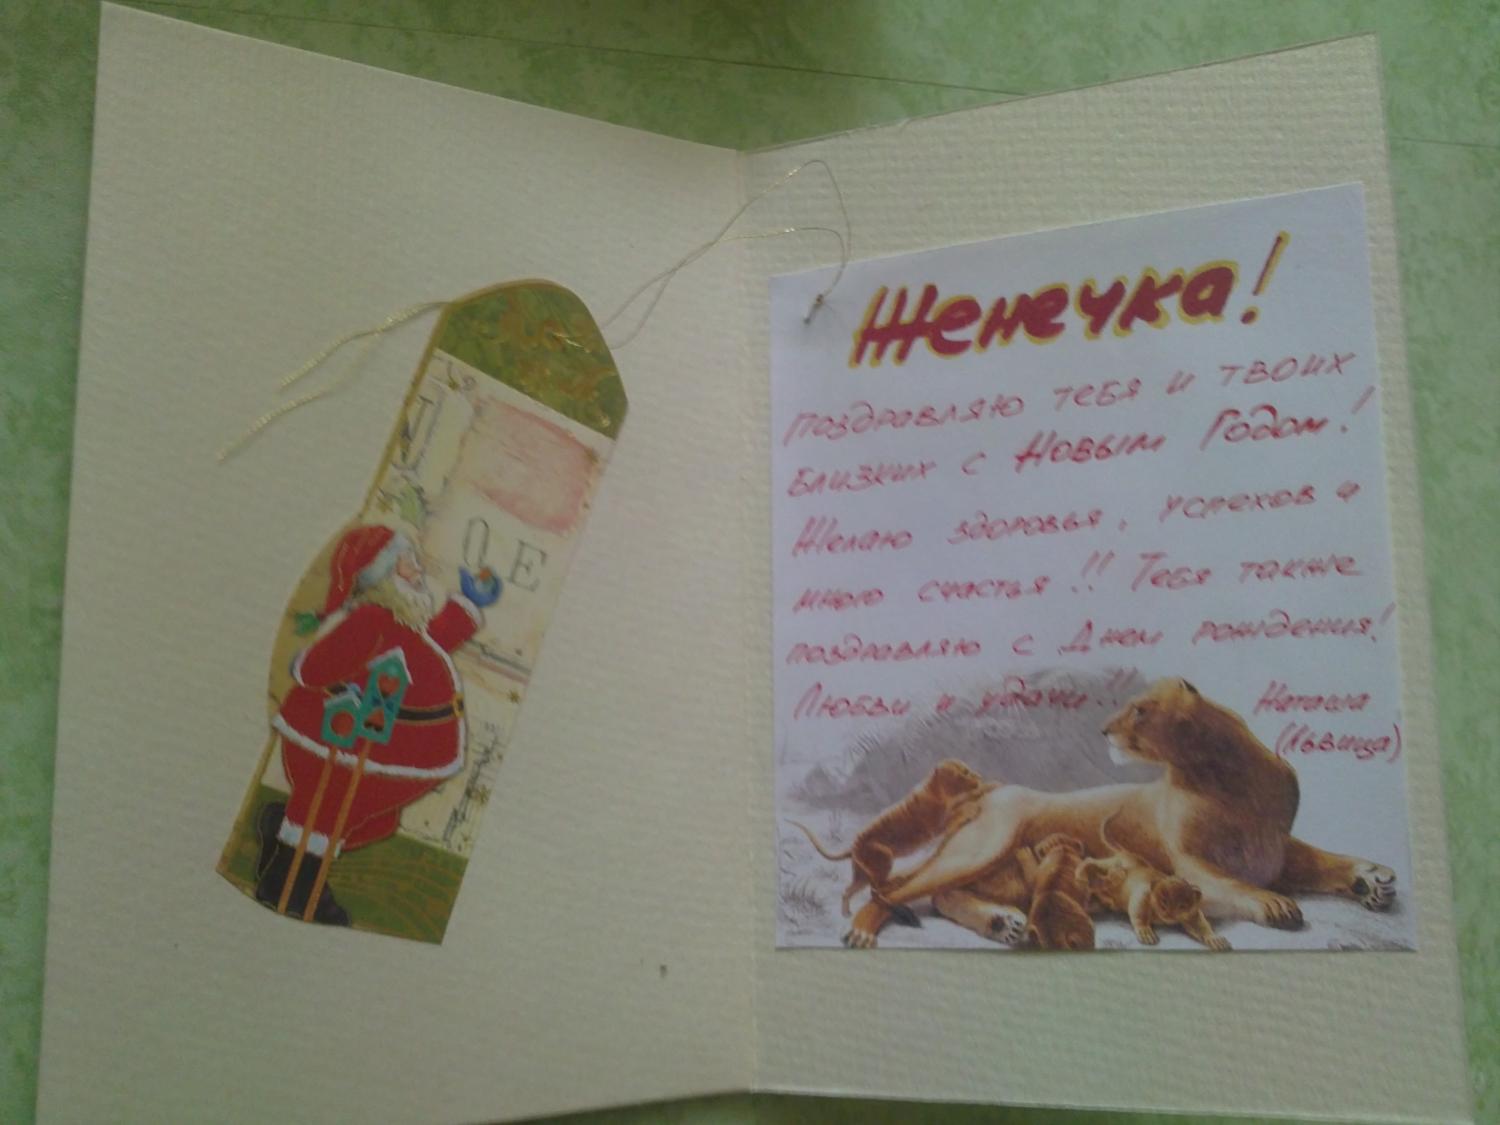 О Е
Женечка!
Поздравляю тебя и твоих
близких с Новым Годом!
Желаю здоровья, успехов и
много счастья!! Тебя также
поздравляю с Днем рождения!
Любви и удачи!!
Наташа
(Львица)